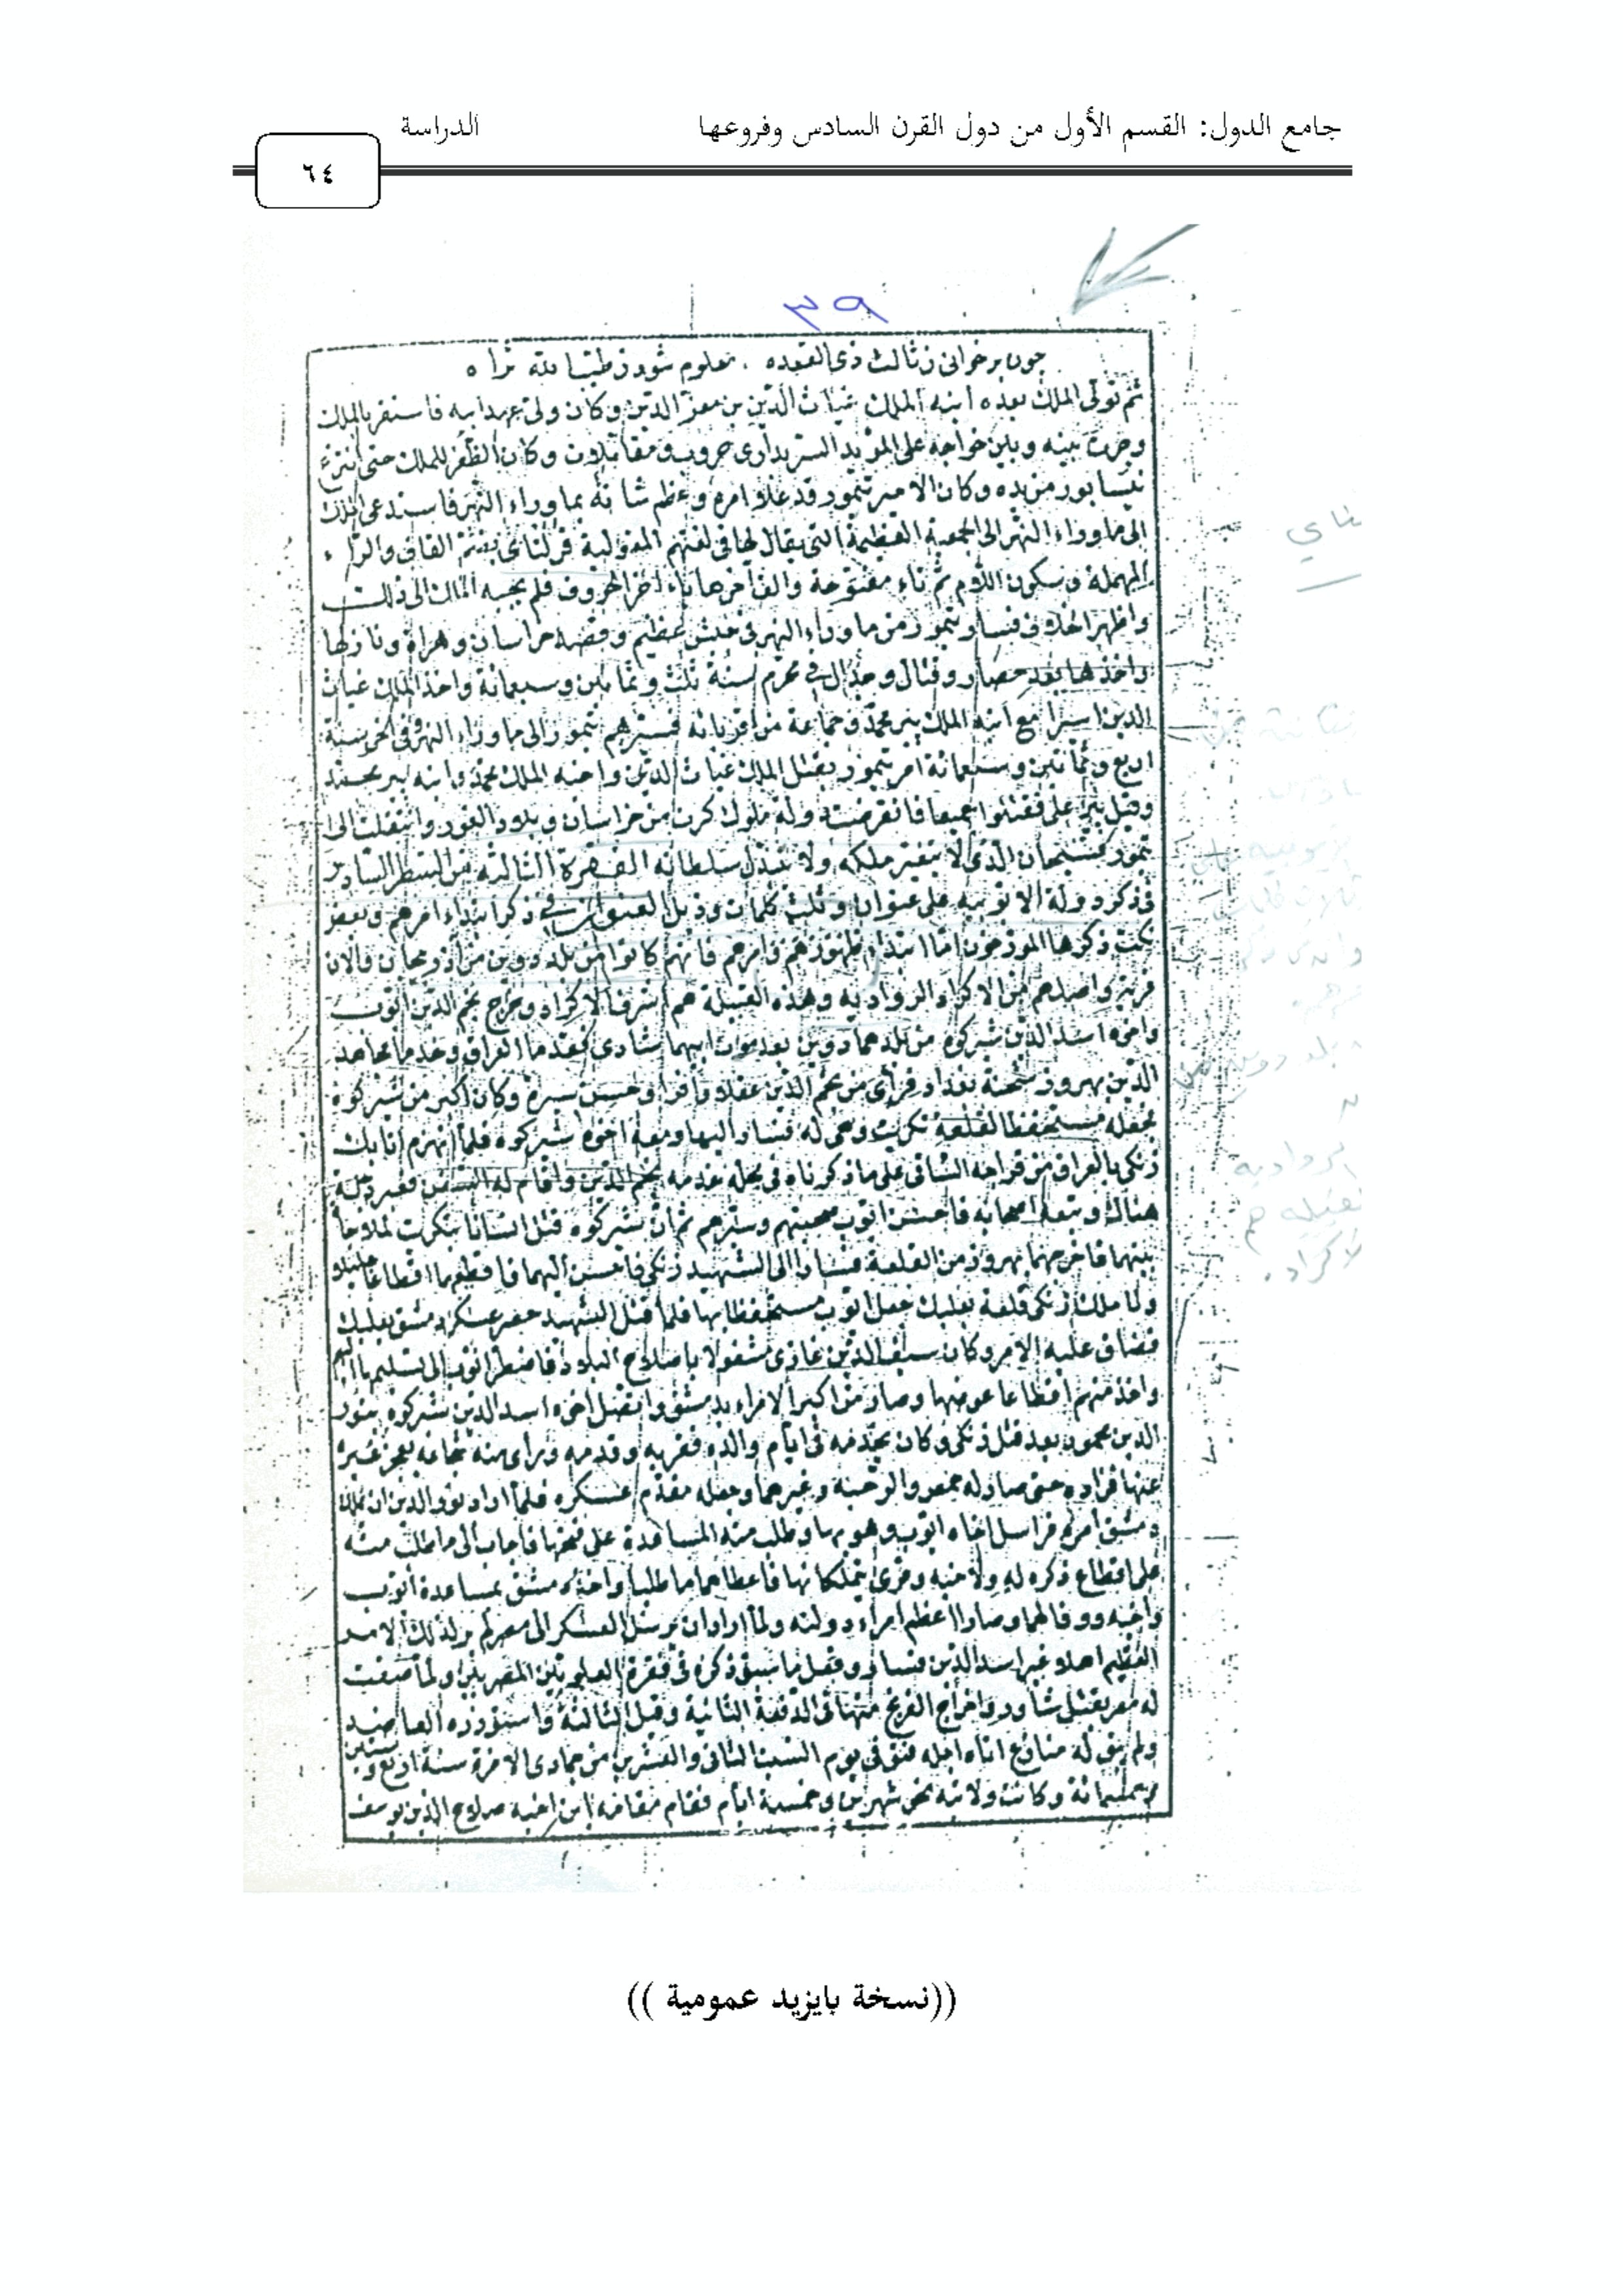 جامع الدول: القسم الأول من دول القرن السادس وفروعها
الدراسة
٦٤
٣٩
جون برخوانى ز ثالث ذى القعده . معلوم شود
ثم تولى الملك بعده ابنه الملك غياث الدين بن معز الدين وكان ولى عهد ابيه فاستقر بالملك
وجرت بينه وبين خواجه على المؤيد السربدارى حروب ومقاتلات وكان الظفر للملك حتى انتزع
نيسابور من يده وكان الامير تيمور قد علا امره وعظم شانه بما وراء النهر فاستدعى الملك
الى ما وراء النهر الى الجمعية العظيمة التى يقال لها فى لغتهم المغولية قرلتاى بضم القاف والراء
المهملة وسكون اللام ثم تاء مفتوحة والف آخرها ياء آخر الحروف فلم يجبه الملك الى ذلك
واظهر الخلاف فسار تيمور من ما وراء النهر فى جيش عظيم وقصد خراسان وهراة ونازلها
واخذها بعد حصار وقتال وجدال فى محرم سنة ثلث وثمانين وسبعمائة واخذ الملك غياث
الدين اسيرا مع ابنه الملك بير محمد وجماعة من اقربائه فسيرهم تيمور الى ما وراء النهر وفى آخر سنة
اربع وثمانين وسبعمائة امر تيمور بقتل الملك غياث الدين واخيه الملك محمد وابنه بير محمد
وقيل بير على فقتلوا جميعا فانقرضت دولة ملوك كرت من خراسان وبلاد الغور وانتقلت الى
تيمور فسبحان الذى لا يتغير ملكه ولا يتبدل سلطانه الفقرة الثالثة من السطر السادس
فى ذكر دولة الايوبية على عنوان وثلث كلمات وذيل العنوان فى ذكر ابتداء امرهم وبعض
نكت ذكرها المورخون اما ابتداء ظهورهم وامرهم فانهم كانوا من بلد دوين من آذربيجان والان
قرية واصلهم من الاكراد الروادية وهذه القبيلة هم اشرف الاكراد وخرج نجم الدين ايوب
واخوه اسد الدين شيركوه من بلدهما دوين بعد موت ابيهما شادى فقدما العراق وخدما مجاهد
الدين بهروز شحنة بغداد فراى من نجم الدين عقلا وافرا وحسن سيرة وكان اكبر من شيركوه
فجعله مستحفظا لقلعة تكريت وهى له فسار اليها ومعه اخوه شيركوه فلما انهزم اتابك
زنكى بالعراق من قراجه الساقى على ما ذكرناه فى محله خدمه نجم الدين واقام له السفن فعبر دجلة
هناك وتبعه اصحابه فاحسن ايوب صحبتهم وسيرهم ثم ان شيركوه قتل انسانا بتكريت لملاحاة
بينهما فاخرجهما بهروز من القلعة فسارا الى الشهيد زنكى فاحسن اليهما واقطعهما اقطاعا جليلا
ولما ملك زنكى قلعة بعلبك جعل ايوب مستحفظا بها فلما قتل الشهيد حصر عسكر دمشق بعلبك
فضاق عليه الامر وكان سيف الدين غازى مشغولا باصلاح البلاد فاضطر ايوب الى تسليمها اليهم
واخذ منهم اقطاعا عوضها وصار من اكبر الامراء بدمشق واتصل اخوه اسد الدين شيركوه بنور
الدين محمود بعد قتل زنكى وكان يخدمه فى ايام والده فقربه وقدمه وراى منه شجاعة يعجز غيره
عنها فزاده حتى صار له حمص والرحبة وغيرهما وجعله مقدم عسكره فلما اراد نور الدين ان يملك
دمشق امره فراسل اخاه ايوب وهو بها وطلب منه المساعدة على فتحها فاجاب الى ما طلب منه
على اقطاع ذكره له ولاخيه وقرى يتملكانها فاعطاهما ما طلبا واخذ دمشق بمساعدة ايوب
واخيه ووفى لهما وصارا اعظم امراء دولته ولما اراد ان يرسل العسكر الى مصر لم ير لذلك الامر
العظيم اهلا غير اسد الدين فسار وفعل ما سبق ذكره فى فقرة العلويين المصريين ولما صفت
له مصر بقتل شاور واخراج الفرنج منها فى الدفعة الثانية وقيل الثالثة واستوزره العاضد
ولم يبق له منازع اتاه اجله فتوفى يوم السبت الثانى والعشرين من جمادى الاخرة سنة اربع وستين
وخمسمائة وكانت ولايته نحو شهرين وخمسة ايام فقام مقامه ابن اخيه صلاح الدين يوسف
((نسخة بايزيد عمومية ))